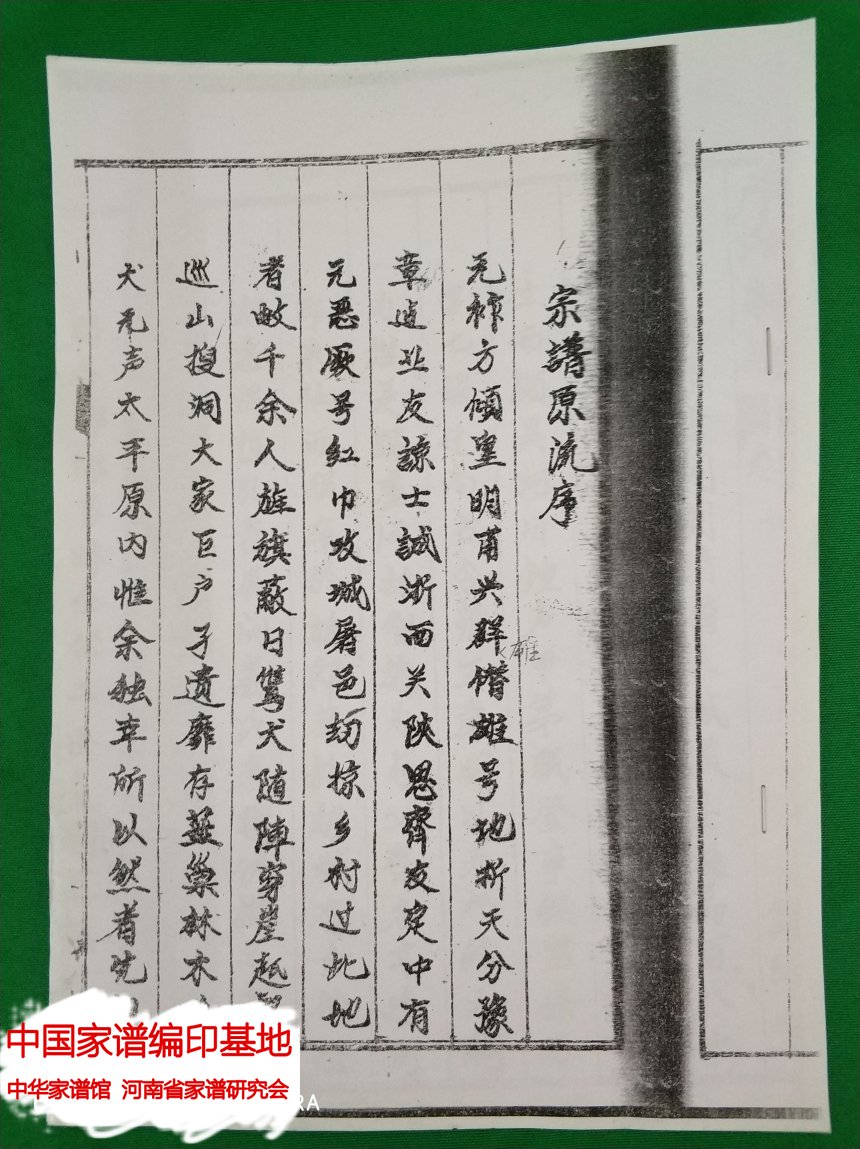 宗譜原流序
元祚方傾皇明甫兴群僭雄号地折天分豫
雄
章逌业友諒士誠浙西关陝思齊友定中有
元恶厥号红巾攻城屠邑劫掠乡村过此地
者畝千余人旌旗蔽日鹰犬随陣穿崖
巡山搜洞大家巨户孑遗靡存燕巢林木
犬无声太平原内惟余独幸所以然者先
中国家谱编印基地
中华家谱馆 河南省家谱研究会
RA